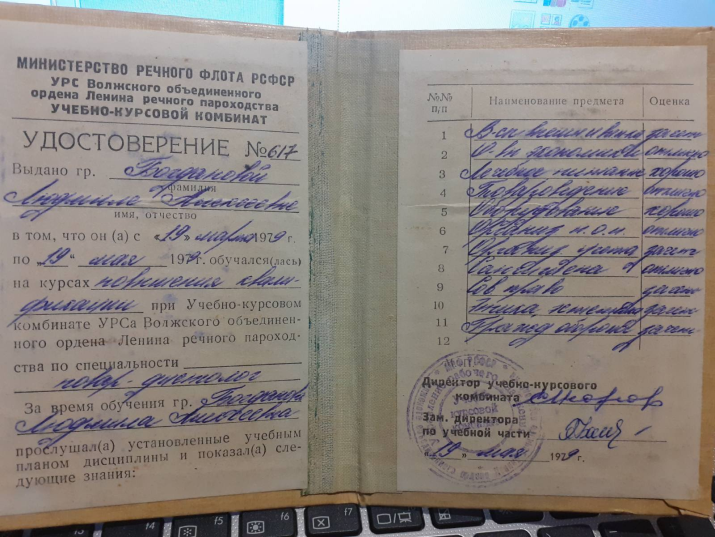 МИНИСТЕРСТВО РЕЧНОГО ФЛОТА РСФСР
УРС Волжского объединенного
ордена Ленина речного пароходства
УЧЕБНО-КУРСОВОЙ КОМБИНАТ
УДОСТОВЕРЕНИЕ №617
Выдано гр. Богдановой
фамилия
Людмиле Алексеевне
имя, отчество
в том, что он (а) с «19» марта 1979г.
по «19» мая 1979г. обучался(лась)
на курсах повышения квали-
фикации при Учебно-курсовом
комбинате УРСа Волжского объединен-
ного ордена Ленина речного пароход-
ства по специальности
повар-диетолог
За время обучения гр. Богданова
Людмила Алексеевна
прослушал(а) установленные учебным
планом дисциплины и показал(а) сле-
дующие знания:
№№ п/п Наименование предмета Оценка
1 зачет
2 экономики отлично
3 Лечебное питание хорошо
4 Товароведение отлично
5 Оборудование хорошо
6 Организ п.о.п. отлично
7 учета зачет
8 отлично
9 Сов право зачет
10 Этика зачет
11 зачет
12
МП
Директор учебно-курсового
комбината
Зам. директора
по учебной части
«19» мая 1979г.
f3 f4 f5 f6 f7 f8